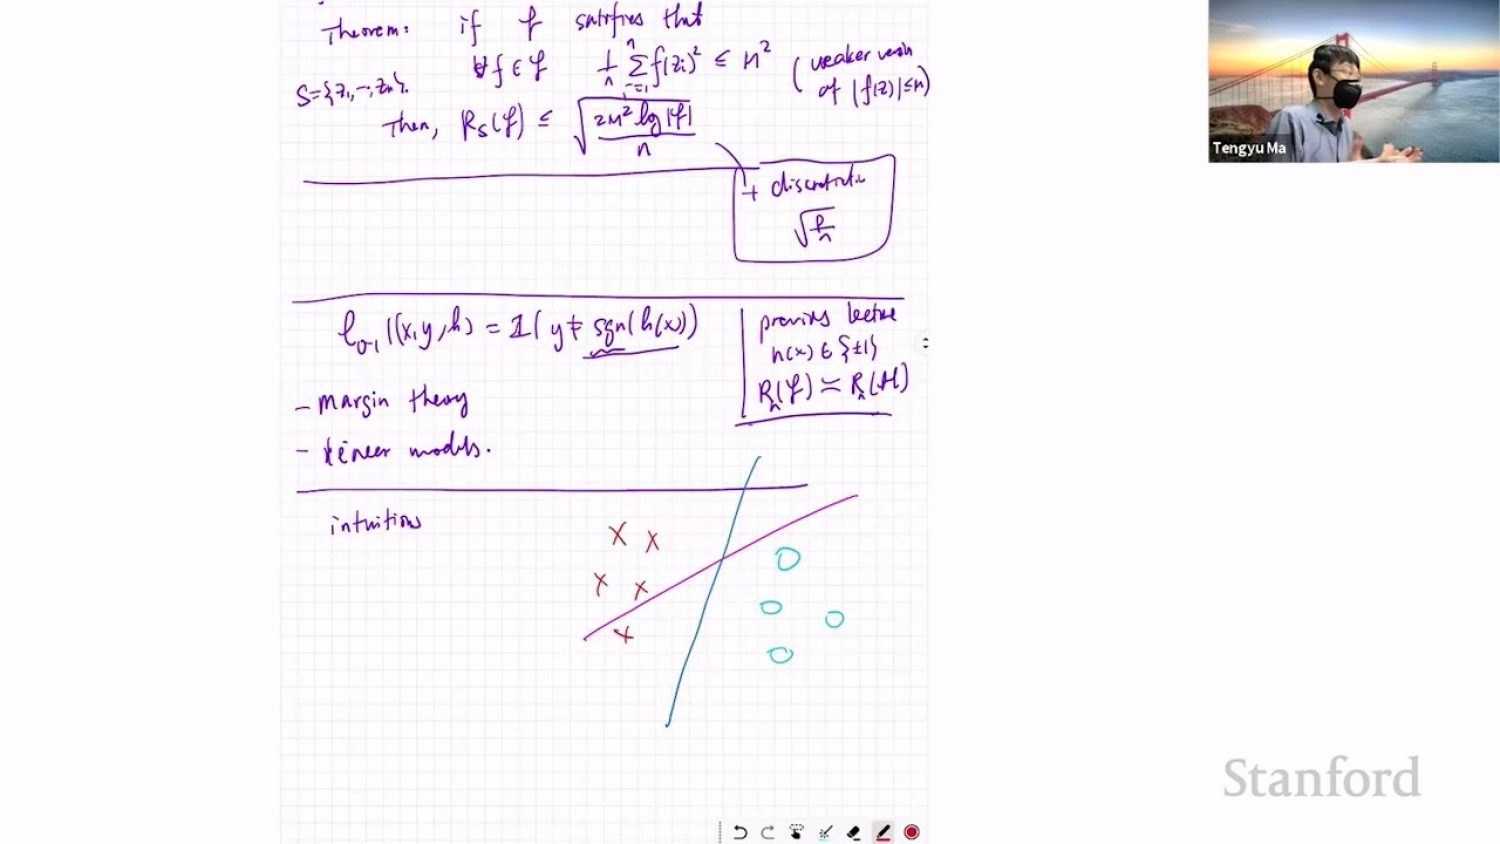 Theorem: if F satisfies that
∀f ∈ F 1/n Σ_{i=1}^n f(z_i)² ≤ M² (weaker version of |f(z)| ≤ M)
S = {z_1, ..., z_n}.
Then, R_S(F) ≤ √(2M² log|F| / n)
+ discretization
√(p/n)
ℓ_{0-1}((x,y,h) = 1(y ≠ sgn(h(x)))
previous lecture
h(x) ∈ {±1}
R_n(F) ≍ R_n(H)
- margin theory
- linear models.
intuitions
Tengyu Ma
Stanford